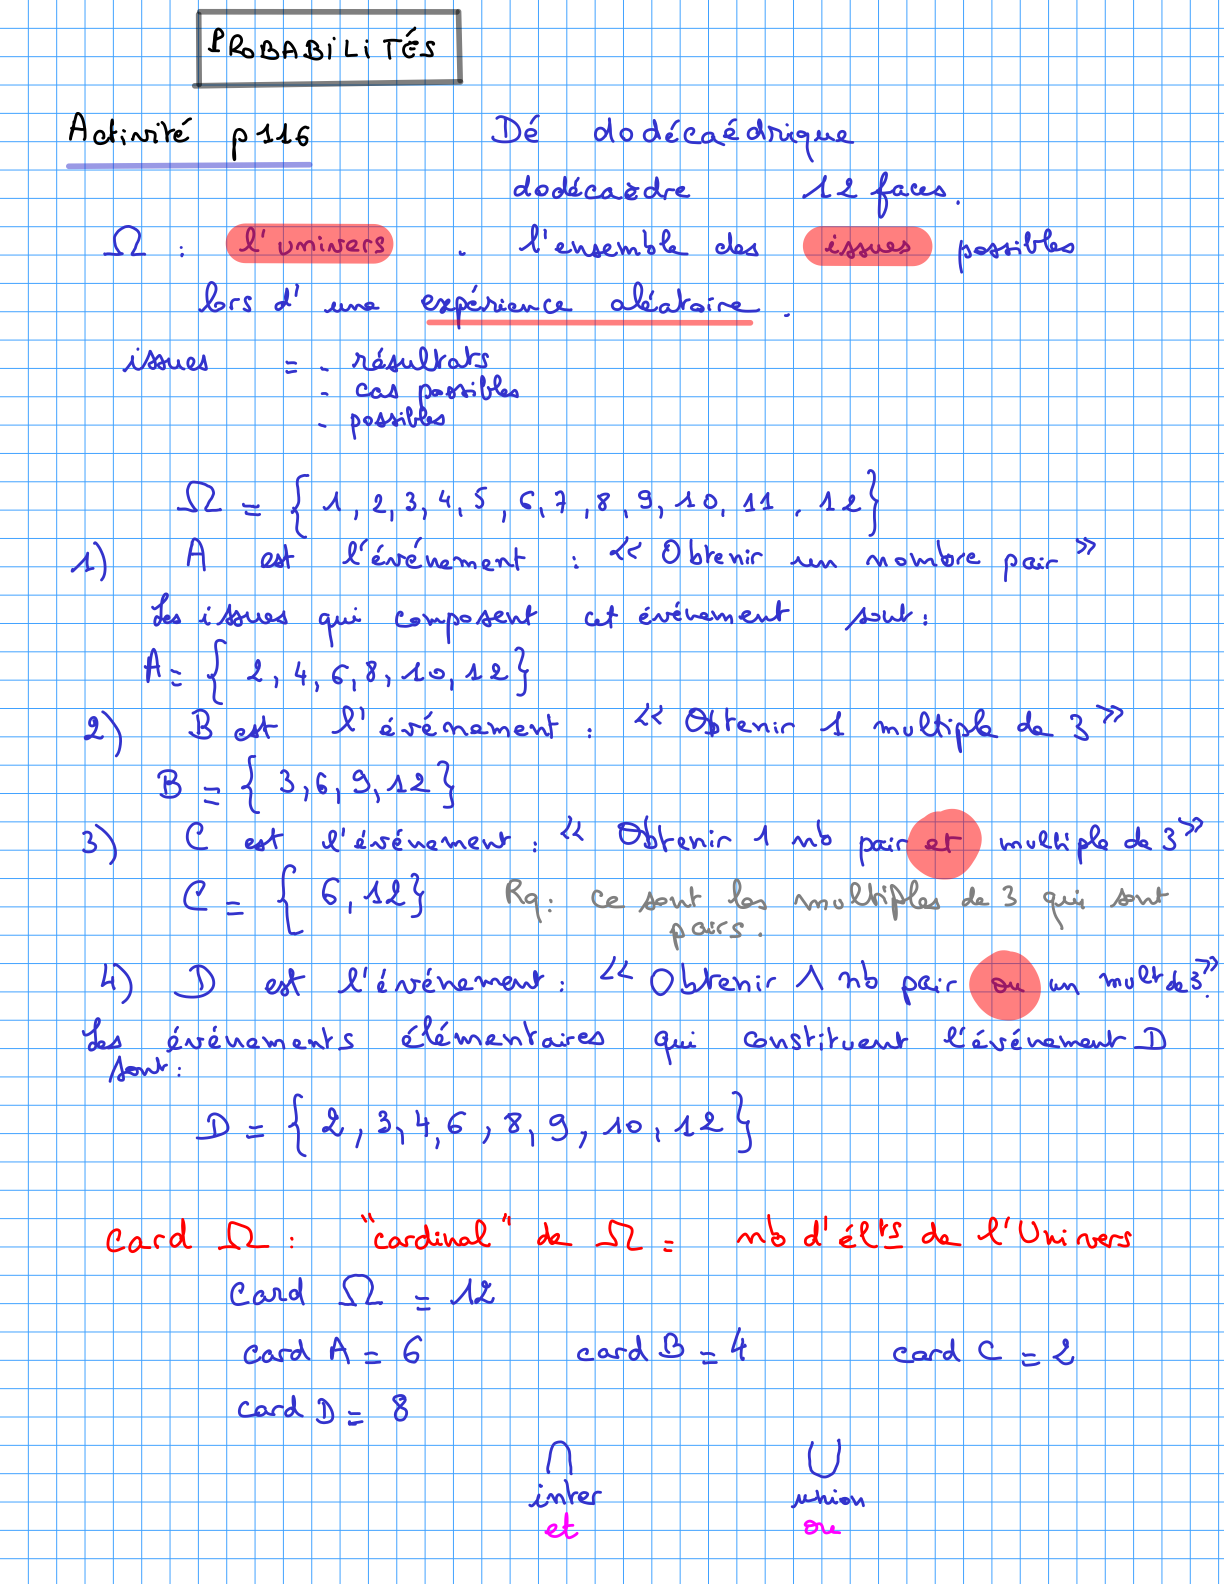 PROBABILITÉS
Activité p116 Dé dodécaédrique
dodécaèdre 12 faces.
Ω : l'univers . l'ensemble des issues possibles
lors d'une expérience aléatoire.
issues = - résultats
- cas possibles
- possibles
Ω = { 1, 2, 3, 4, 5, 6, 7, 8, 9, 10, 11, 12}
1) A est l'événement : << Obtenir un nombre pair >>
Les issues qui composent cet événement sont:
A = { 2, 4, 6, 8, 10, 12}
2) B est l'événement : << Obtenir 1 multiple de 3 >>
B = { 3, 6, 9, 12 }
3) C est l'événement : << Obtenir 1 nb pair et multiple de 3 >>
C = { 6, 12} Rq: ce sont les multiples de 3 qui sont
pairs.
4) D est l'événement : << Obtenir 1 nb pair ou un mult de 3 >>.
Les événements élémentaires qui constituent l'événement D
sont:
D = { 2, 3, 4, 6, 8, 9, 10, 12 }
card Ω : "cardinal" de Ω = nb d'élts de l'Univers
Card Ω = 12
card A = 6 card B = 4 card C = 2
card D = 8
∩ ∪
inter union
et ou